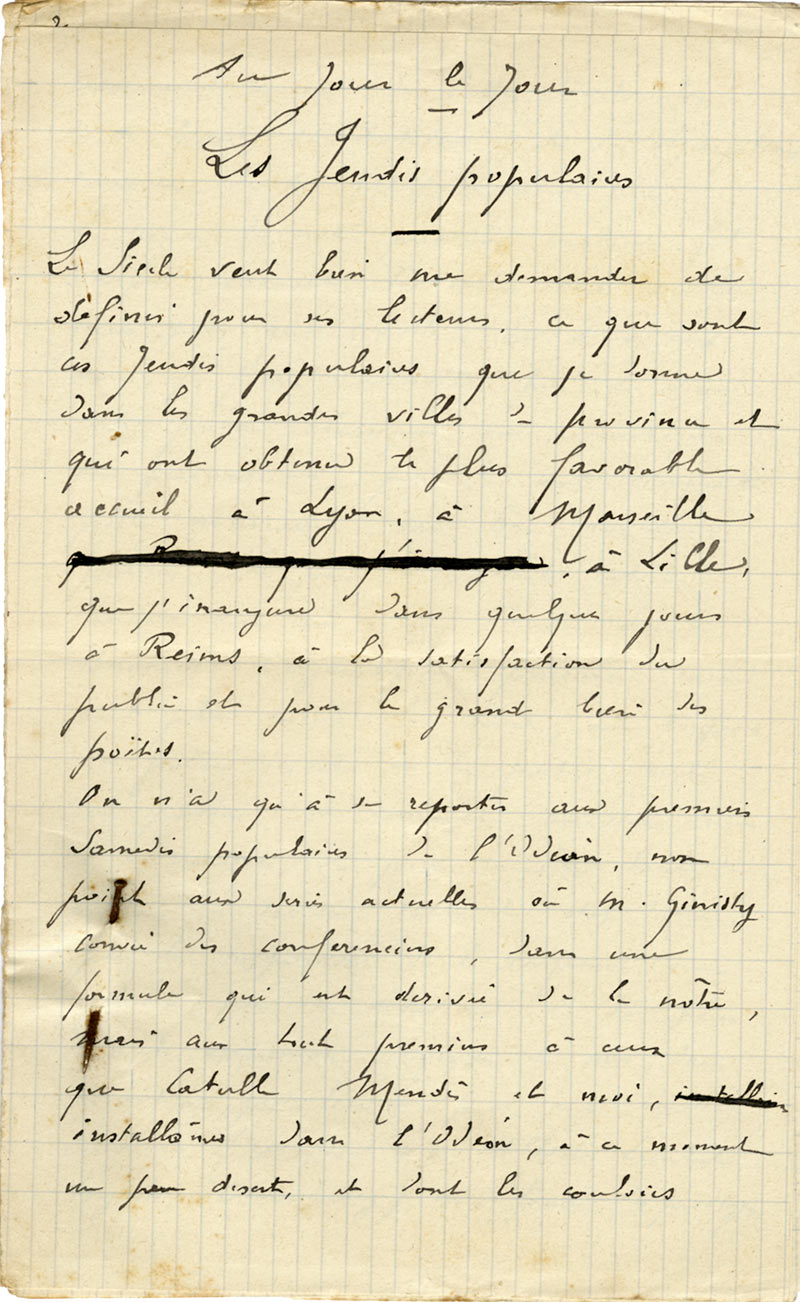 Au jour le jour
Les Jeudis populaires
Le Siècle veut bien me demander de
définir pour ses lecteurs, ce que sont
ces Jeudis populaires que je donne
dans les grandes villes de province et
qui ont obtenu le plus favorable
accueil à Lyon, à Marseille
que Reims que j'inaugure, à Lille,
que j'inaugure dans quelques jours
à Reims, à la satisfaction du
public et pour le grand bien des
poëtes.
On n'a qu'à se reporter aux premiers
Samedis populaires de l'Odéon, non
point aux séries actuelles où M. Ginisty
convie des conférenciers, dans une
formule qui est dérivée de la nôtre,
mais aux tout premiers à ceux
que Catulle Mendès et moi, installâmes
installâmes dans l'Odéon, à ce moment
un peu désert, et dont les couloirs